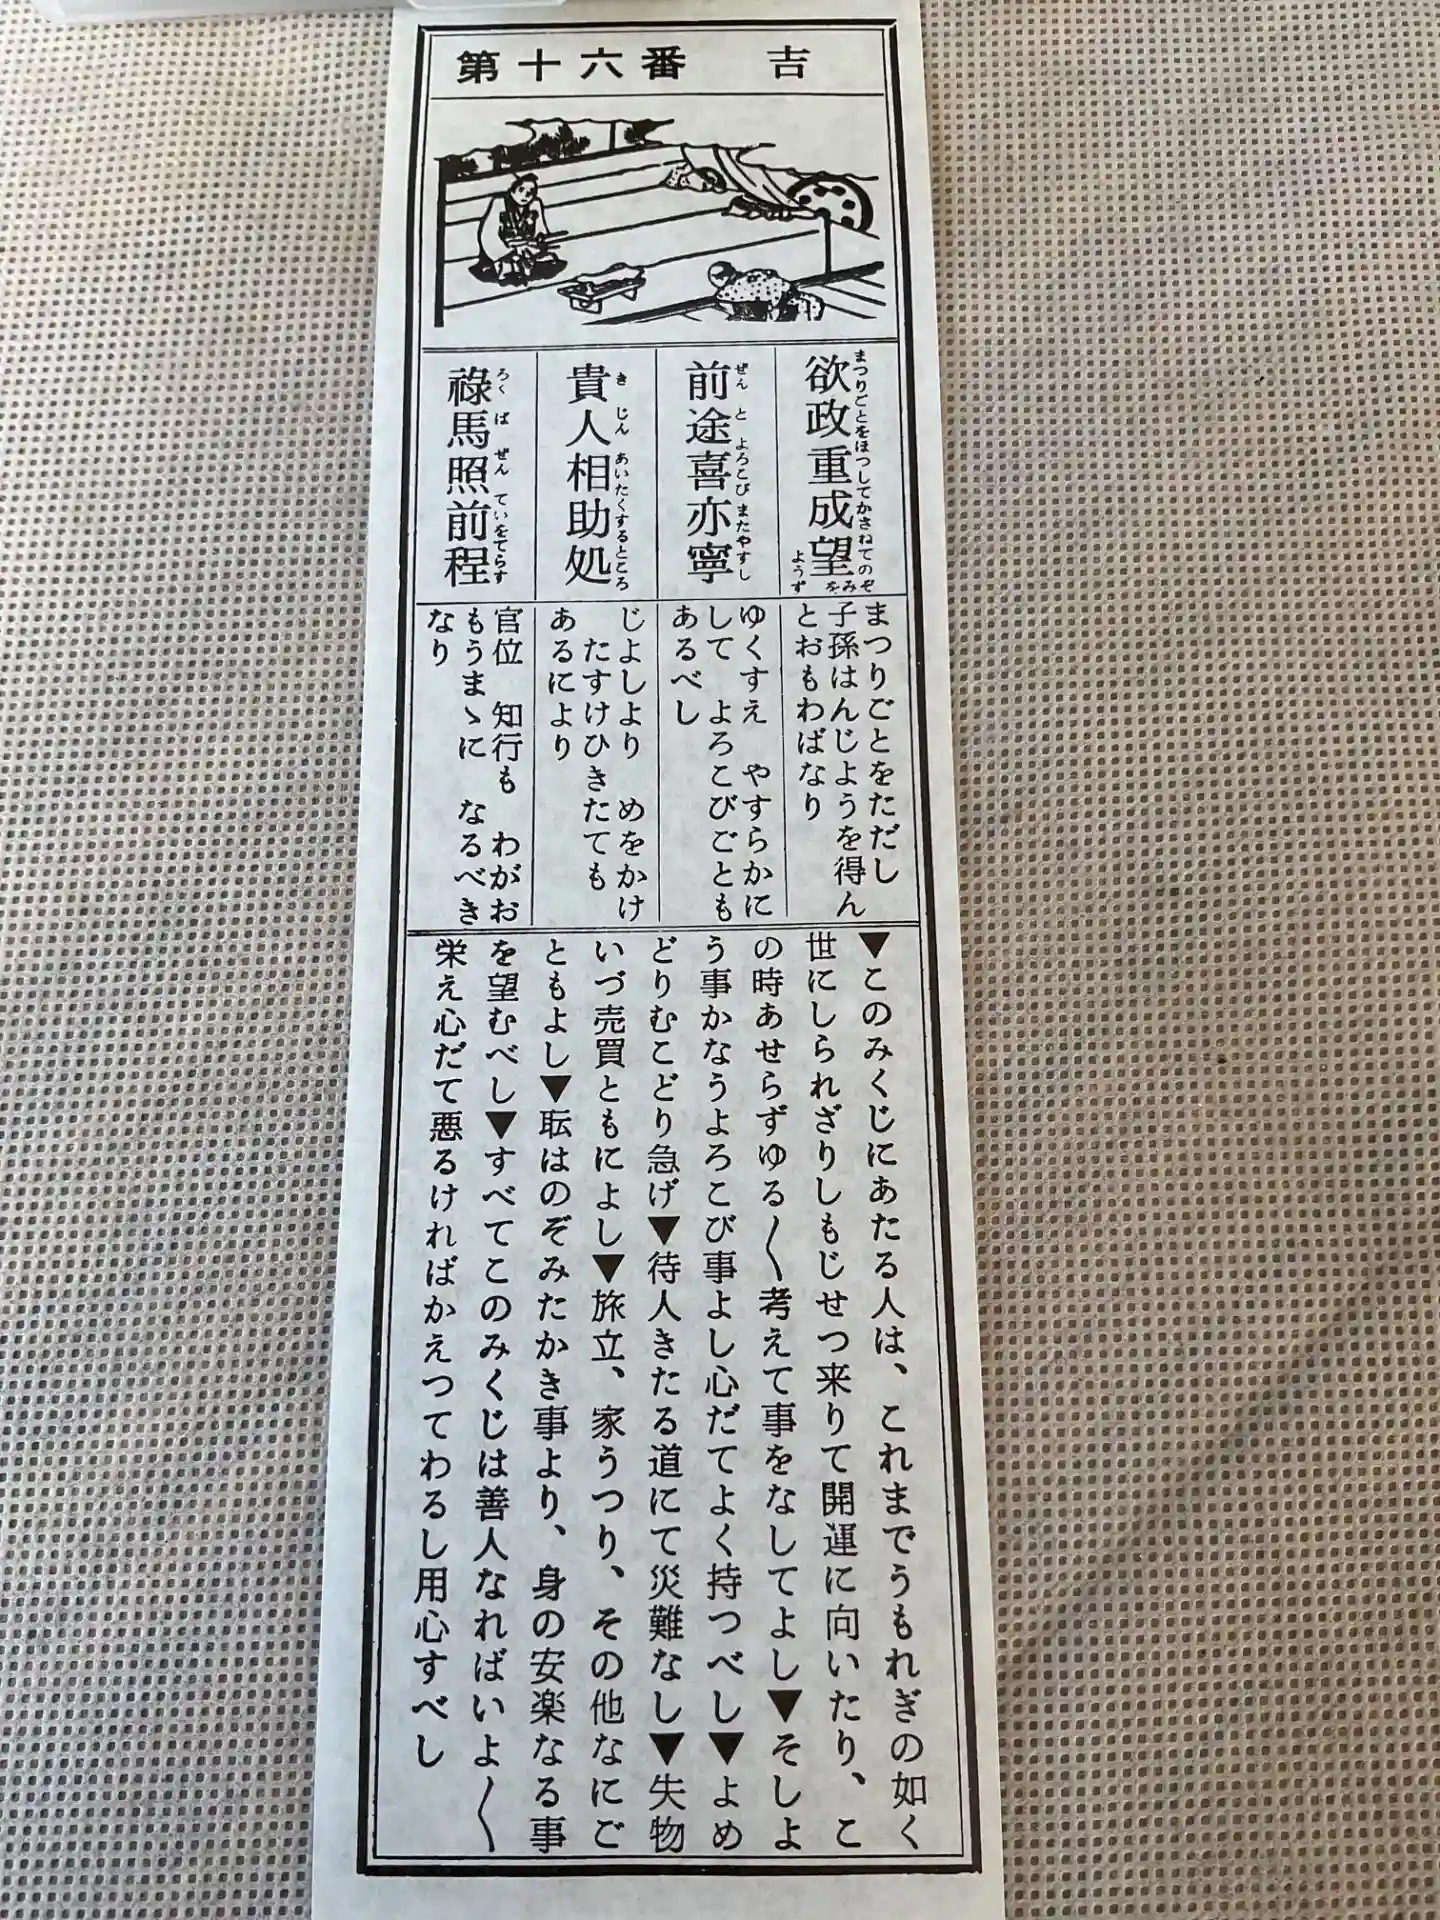 第十六番 吉
欲政重成望
まつりごとをほつしてかさねてのぞみをようず
前途喜亦寧
ぜんとよろこびまたやすし
貴人相助処
きじんあいたくするところ
祿馬照前程
ろくばぜんていをてらす
まつりごとをただし
子孫はんじようを得ん
とおもわばなり
ゆくすえ やすらかに
して よろこびごとも
あるべし
じよしより めをかけ
たすけひきたても
あるにより
官位 知行も わがお
もうまゝに なるべき
なり
▼このみくじにあたる人は、これまでうもれぎの如く
世にしられざりしもじせつ来りて開運に向いたり、こ
の時あせらずゆる〱考えて事をなしてよし▼そしよ
う事かなうよろこび事よし心だてよく持つべし▼よめ
どりむこどり急げ▼待人きたる道にて災難なし▼失物
いづ売買ともによし▼旅立、家うつり、その他なにご
ともよし▼転はのぞみたかき事より、身の安楽なる事
を望むべし▼すべてこのみくじは善人なればいよ〱
栄え心だて悪るければかえつてわるし用心すべし